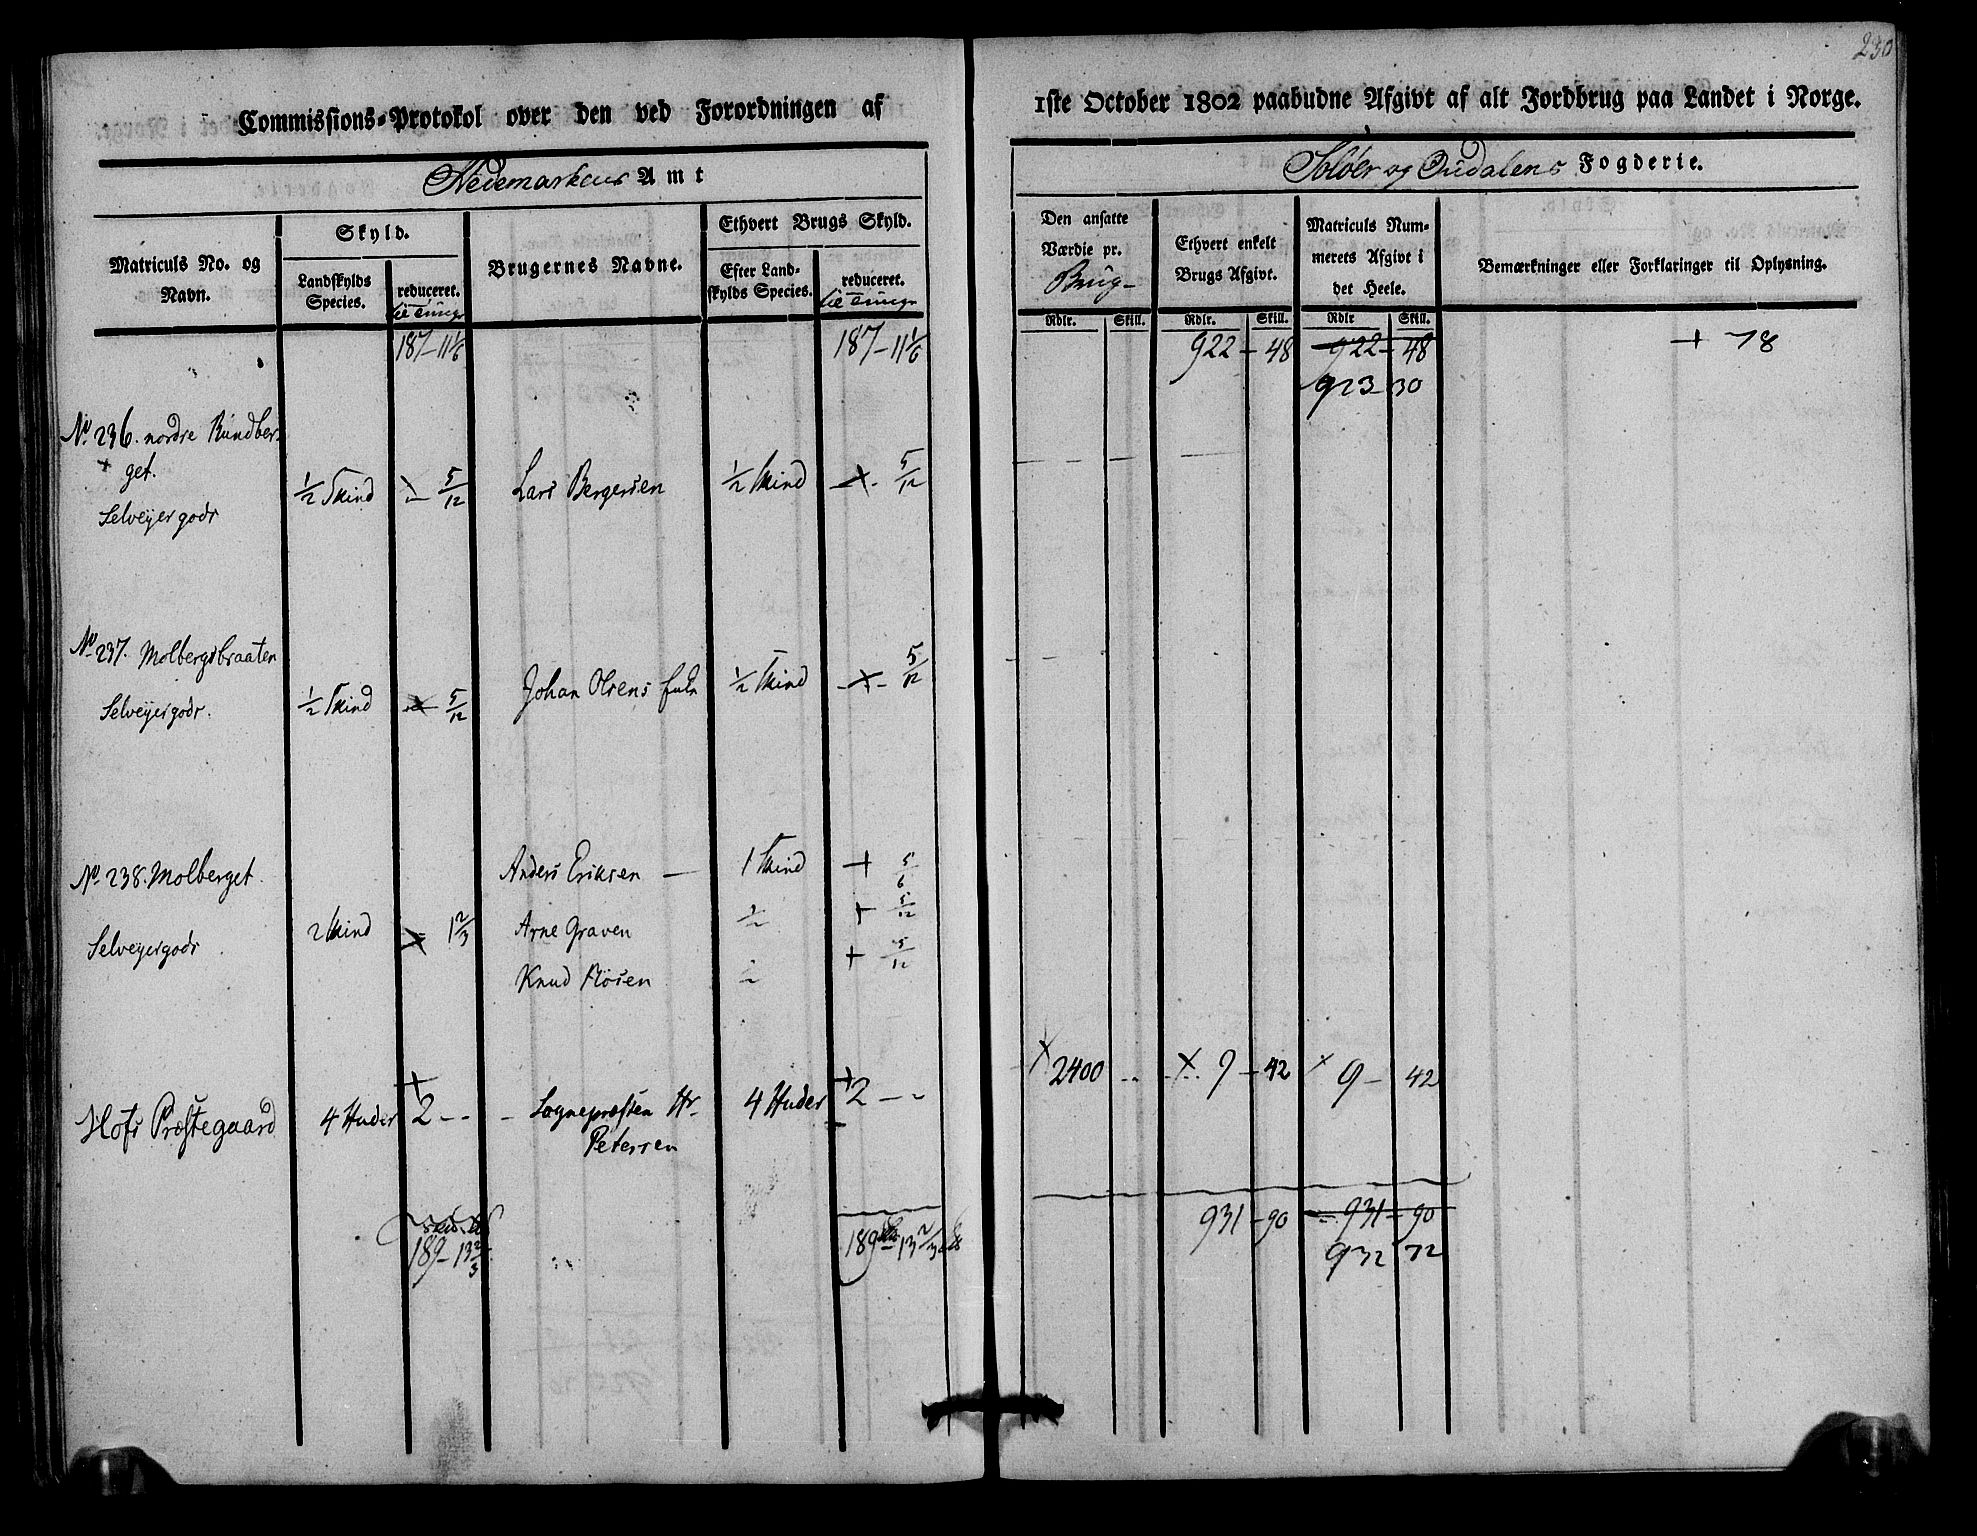 230
Commissions-Protokol over den ved Forordningen af 1ste October 1802 paabudne Afgivt af alt Jordbrug paa Landet i Norge.
Hedemarkens Amt
Soløer og Oudalens Fogderie.
Matriculs No. og Navn.
Skyld.
Landskylds Species.
reduceret.
Brugernes Navne.
Ethvert Brugs Skyld.
Efter Landskylds Species.
reduceret.
Den ansatte Værdie pr. Brug
Ethvert enkelt Brugs Afgivt.
Matriculs Nummerets Afgivt i det Heele.
Bemærkninger eller Forklaringer til Oplysning.
Rdlr. Skill. Rdlr. Skill. Rdlr Skill.
187 - 11 1/6 187 - 11 1/6 922 - 48 922 - 48 + 78
923 30
No 236. nordre Rundber-
get.
Selveyergods
1/2 Skind 5/12 Lars Bergersen 1/2 Skind 5/12
No 237. Molbergsbraaten
Selveyergods.
1/2 Skind 5/12 Johan Olsens 1/2 Skind 5/12
No 238. Molberget.
Selveyergods
2 Skind 1 2/3
Anders Eriksen 1 Skind + 5/6
Arne Graven 1/2 + 5/12
Knud 1/2 + 5/12
Hofs Præstegaard 4 Huder + 2 - - Sognepræsten Hr. 4 Huder + 2 - - x 2400 x 9 - 42 x 9 - 42
Petersen
189 - 13 2/3 189 13 2/3 931 - 90 931 - 90
932 72